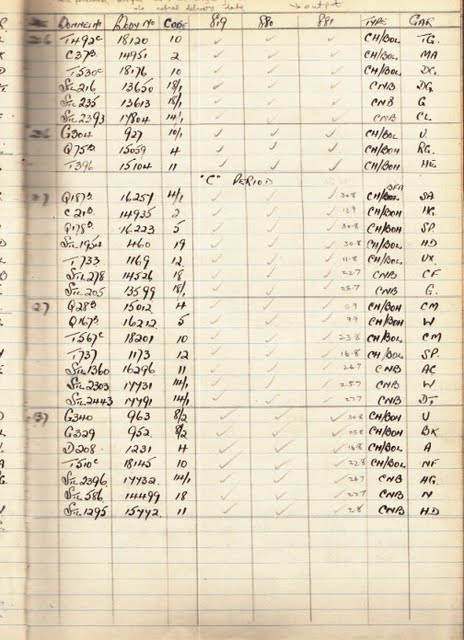 via actual delivery date → output
BONNET Nº BODY Nº CODE 819 880 881 TYPE GAR
26 T492ᶜ 18120 10 ✓ ✓ ✓ CH/BOL TG.
C37ᴮ 14951 2 ✓ ✓ ✓ CH/BOL MA
T530ᶜ 18176 10 ✓ ✓ ✓ CH/BOL DG.
STL216 13650 18/1 ✓ ✓ ✓ CNB DG.
STL235 13613 18/1 ✓ ✓ ✓ CNB G
STL2393 17804 14/1 ✓ ✓ ✓ CNB CL
26 G304 927 10/1 ✓ ✓ ✓ CH/BOL U
Q75ᴮ 15059 4 ✓ ✓ ✓ CH/BOH RG.
T396 15104 11 ✓ ✓ ✓ CH/BOH HE
"C" PERIOD
27 Q187ᴮ 16257 4/1 ✓ ✓ ✓ 30.8 CH/BOL SA
C21ᴮ 14935 2 ✓ ✓ ✓ CH/BOH HG
Q178ᴮ 16223 5 ✓ ✓ ✓ 30.8 CH/BOH SP
STL1954 460 19 ✓ ✓ ✓ 30.8 CH/BOL HD
T733 1169 12 ✓ ✓ ✓ 11.8 CH/BOL UX.
STL278 14526 18 ✓ ✓ ✓ 22.7 CNB CF
STL205 13599 18/1 ✓ ✓ ✓ 25.7 CNB G.
27 Q28ᴮ 15012 4 ✓ ✓ ✓ CH/BOH CM
Q167ᴮ 16212 5 ✓ ✓ ✓ 9.9 CH/BOH W
T567ᶜ 18201 10 ✓ ✓ ✓ 23.8 CH/BOL CM
T737 1173 12 ✓ ✓ ✓ 16.8 CH/BOL SP.
STL1360 16296 11 ✓ ✓ ✓ 26.7 CNB AC
STL2303 17731 14/1 ✓ ✓ ✓ 25.7 CNB W
STL2443 17791 14/1 ✓ ✓ ✓ 27.7 CNB DT
37 G340 963 8/2 ✓ ✓ ✓ 30.8 CH/BOH U
G329 952 8/2 ✓ ✓ ✓ CH/BOH BK
D208 1231 4 ✓ ✓ ✓ 16.8 CH/BOL A
T510ᶜ 18145 10 ✓ ✓ ✓ 22.8 CH/BOL NF
STL2396 17732 14/1 ✓ ✓ ✓ 26.7 CNB HG.
STL586 14499 18 ✓ ✓ ✓ 27.7 CNB N
STL1295 15772 11 ✓ ✓ ✓ 2.8 CNB HD